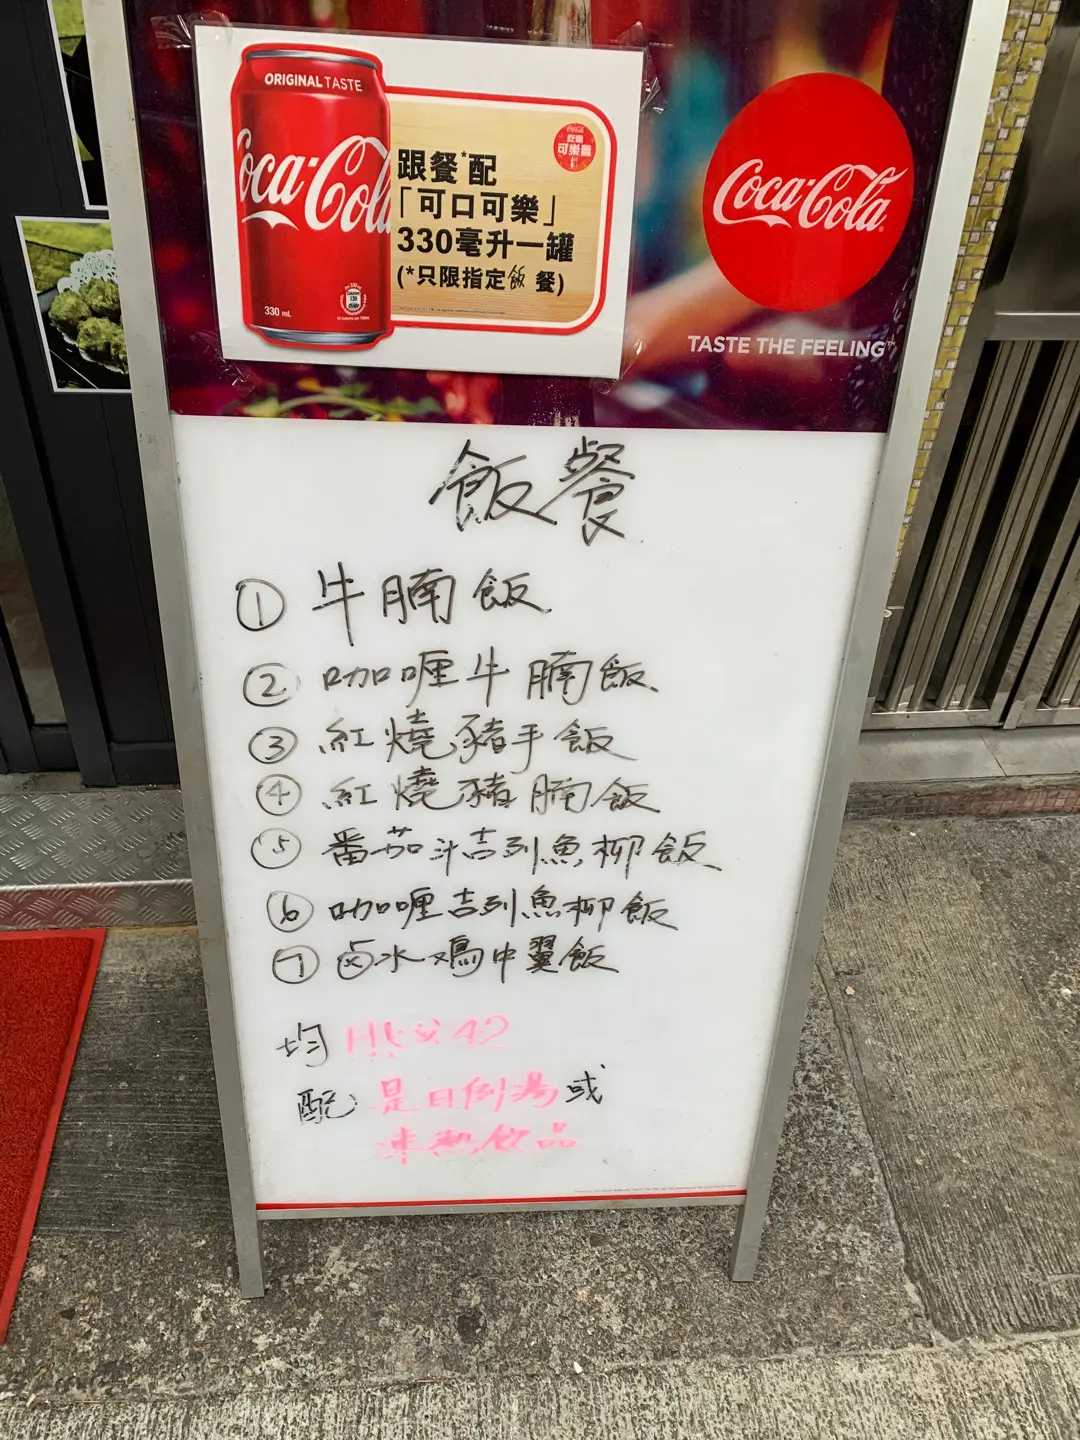 ORIGINAL TASTE
Coca-Cola
330 mL
跟餐*配
「可口可樂」
330毫升一罐
(*只限指定飯 餐)
Coca-Cola
TASTE THE FEELING™
飯餐
① 牛腩飯
② 咖喱牛腩飯
③ 紅燒豬手飯
④ 紅燒豬腩飯
⑤ 番茄汁吉列魚柳飯
⑥ 咖喱吉列魚柳飯
⑦ 卤水鸡中翼飯
均 HK$42
配 是日例湯或
凍熱飲品